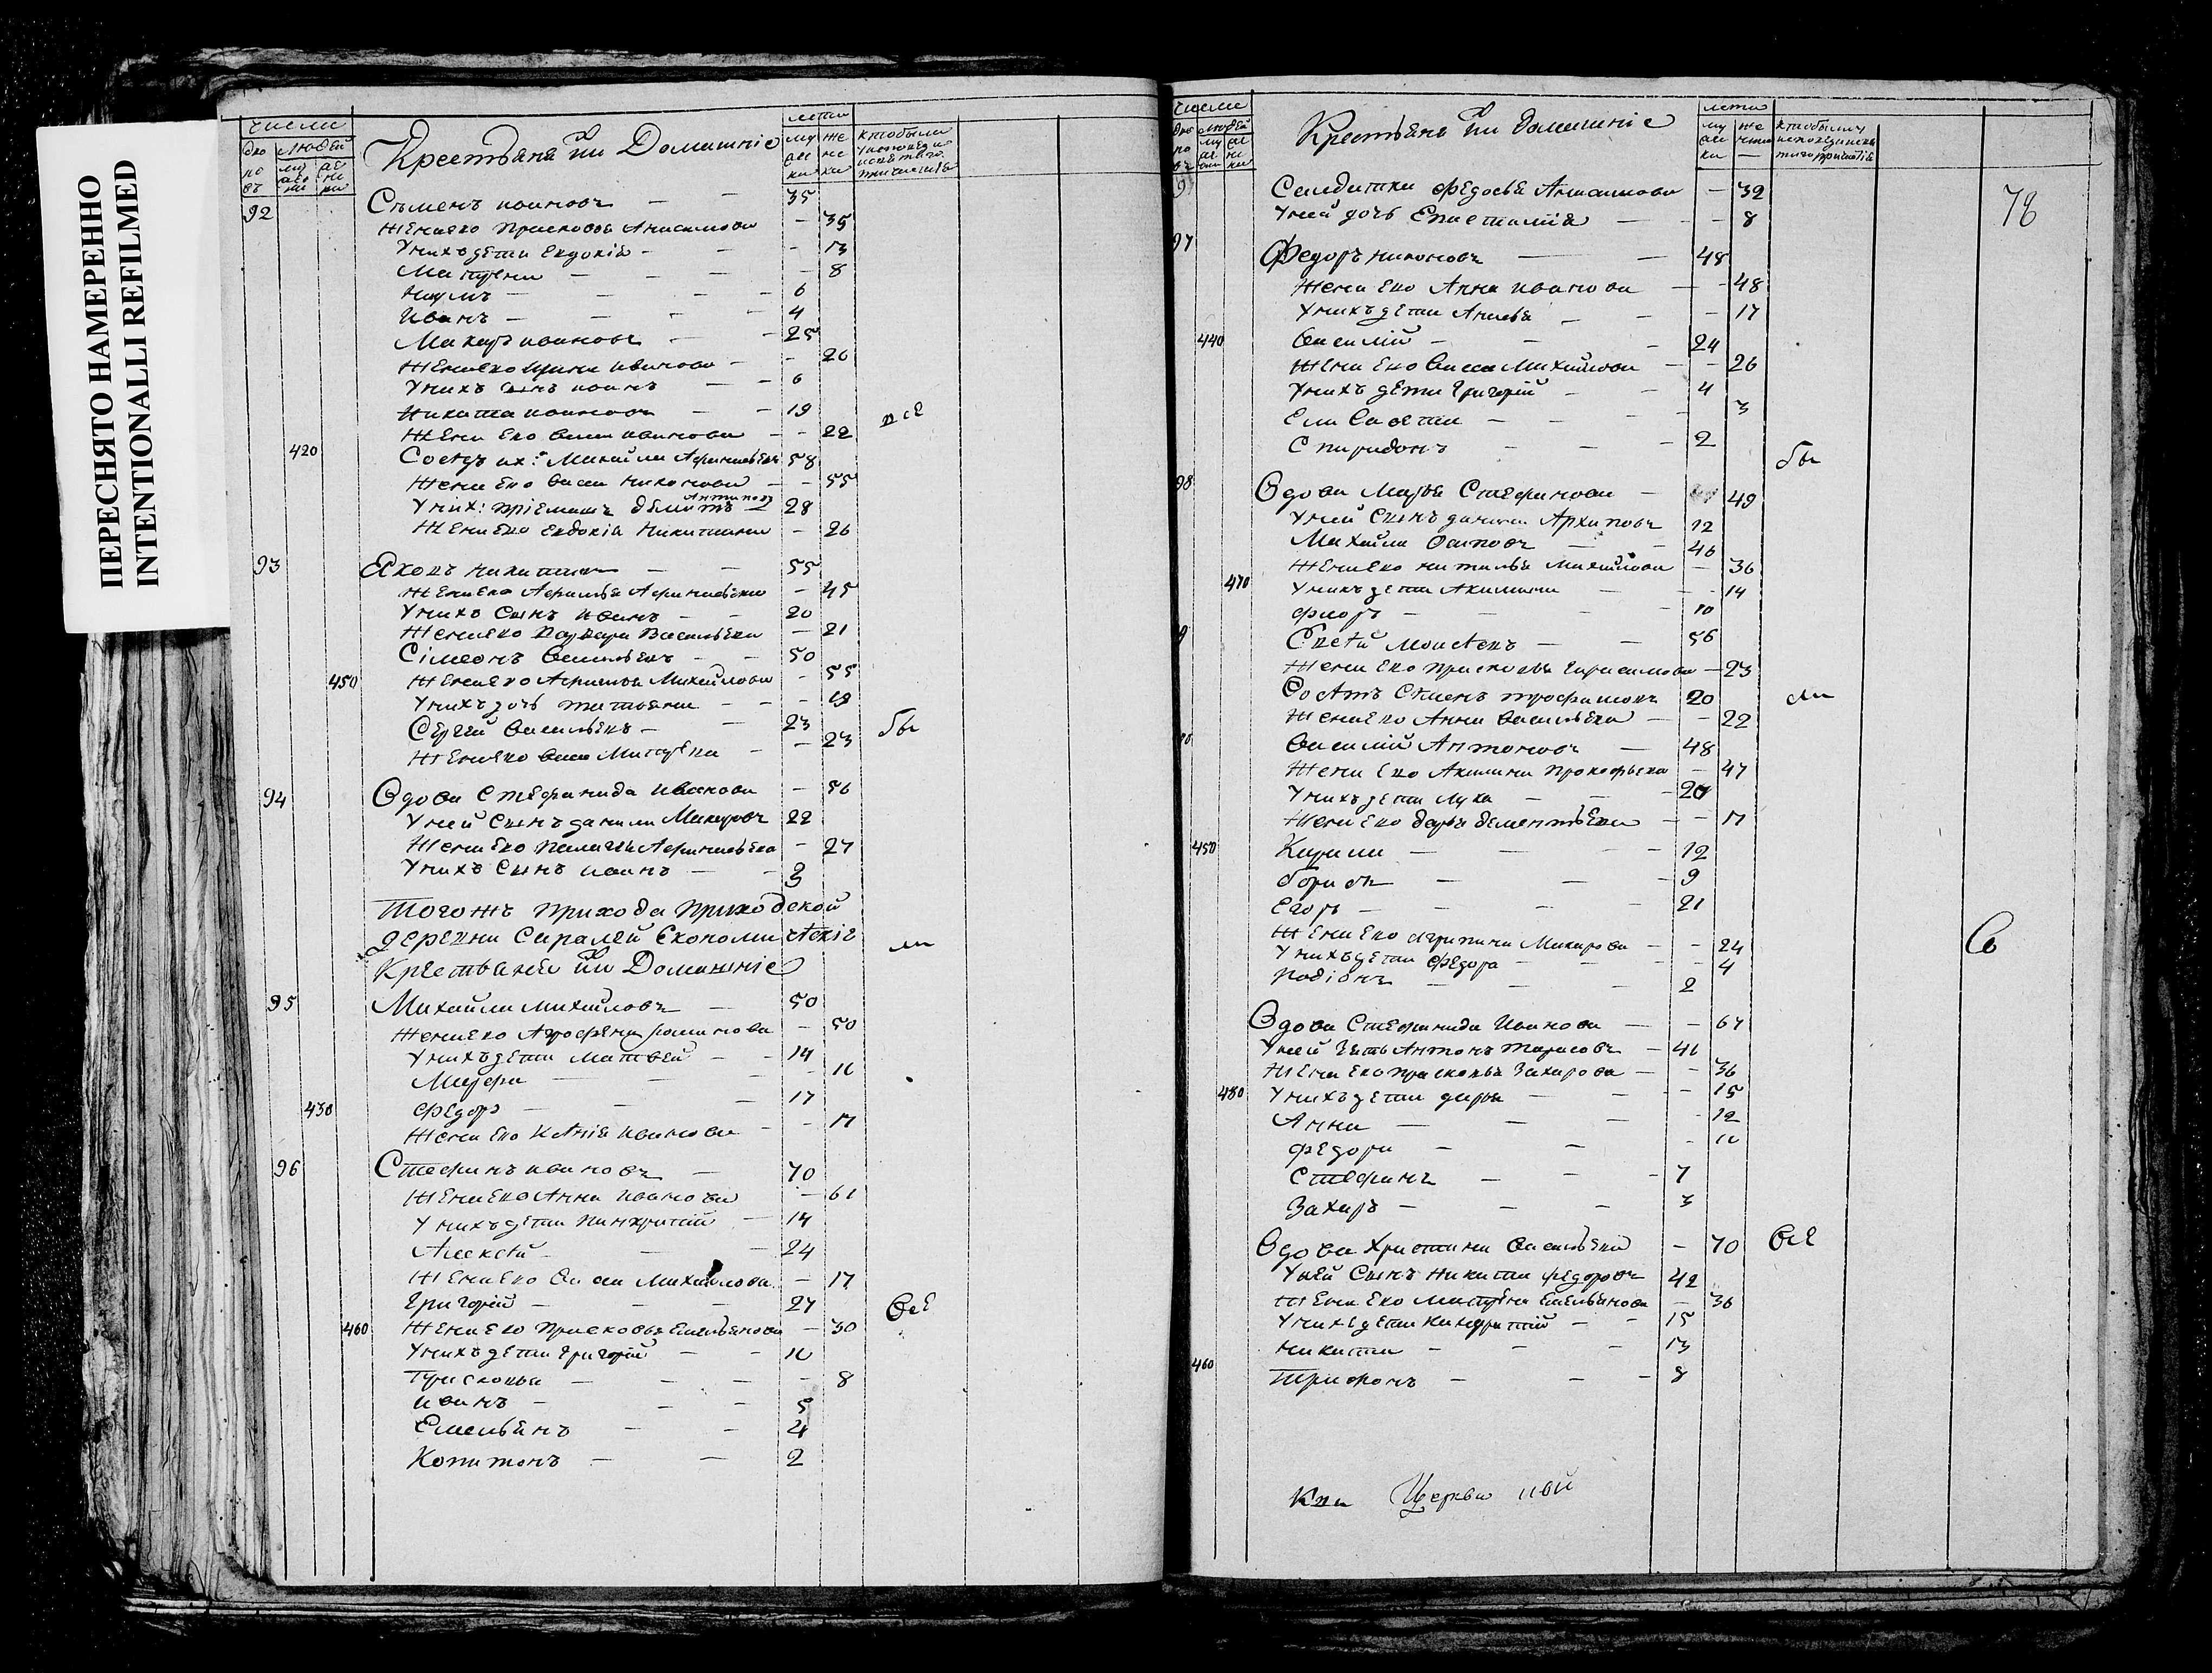 ПЕРЕСНЯТО НАМЕРЕННО
INTENTIONALLI REFILMED
числи
Крестьяне йи Домашніе
92 Съменъ ивановъ 35
жена ево Прасковья Анисимова 35
У нихъ дети Евдокіа 13
Матрена 8
Наумъ 6
Иванъ 4
Макаръ ивановъ 25
жена ево ирина иванова 26
У нихъ сынъ иванъ 6
Никита ивановъ 19
все
Жена ево васа иванова 22
420 Соседъ их: Михайла Афанасьевъ 58
Жена ево васа никонова 55
У них: пріемышъ Антиповъ 28
Жена ево евдокіа никитина 26
93 Яковъ никитинъ 55
жена ево Афимья Афанасьева 45
У нихъ Сынъ иванъ 20
Жена ево Варвара Васильева 21
Сімеонъ Васильевъ 50
450 жена ево Афимья Михайлова 55
У нихъ дочь татьяна 19
Сергей Васильевъ 23
бы
жена ево Матрена 23
94 Вдова Стефанида иванова 56
У ней Сынъ данила Макаровъ 22
Жена ево Палагея Афанасьева 27
У нихъ Сынъ иванъ 3
Тогожъ прихода приходской
деревни Саралей Економическіе
ли
Крестьяне йи Домашніе
95 Михайла михайловъ 50
жена ево Агрофена романова 50
У нихъ дети Матвей 14
Марфа 10
430 Федоръ 17
жена ево иванова 17
96 Стефанъ ивановъ 70
жена ево Анна иванова 61
У нихъ дети Панкратій 14
Алексей 24
жена ево Васа Михайлова 17
Григорій 27
все
460 жена ево Прасковья Емельянова 30
У нихъ дети Григорій 10
Прасковья 8
иванъ 5
Емельянъ 4
Копитонъ 2
числи
Крестьяне йи домашніе
78
Салдатка Федосья Анисимова 32
У ней дочь Епистиміа 8
97 Федоръ никоновъ 48
Жена ево Анна иванова 48
У нихъ дети Анисья 17
440 Василій 24
жена ево Васса Михайлова 26
У нихъ дети Григорій 4
Елисавета 3
Спиридонъ 2
бы
98 Вдова Марья Стефанова 49
У ней Сынъ данила Архиповъ 12
Михайла Осиповъ 46
жена ево наталья Михайлова 36
470 У нихъ дети Акилина 14
Флоръ 10
Моисеевъ 56
жена ево прасковья Герасимова 23
Соседъ Съменъ трофимовъ 20
ли
жена ево Анна васильева 22
Василій Антоновъ 48
жена ево Акилина прокофьева 47
У нихъ дети Лука 20
жена ево дарья дементьева 17
450 Кирила 12
борисъ 9
Егоръ 21
жена ево Агрипина Макарова 24
Со
У нихъ дети Федора 4
Родіонъ 2
Вдова Стефанида Иванова 67
У ней зять Антонъ Тарасовъ 41
жена ево прасковья Захарова 36
480 У нихъ дети дарья 15
Анна 12
Федора 10
Стефанъ 7
Захаръ 3
Вдова Христина Васильева 70
все
У ней Сынъ Никита Федоровъ 42
жена ево Матрена Емельянова 36
У нихъ дети Кандратій 15
никита 13
460 Трифонъ 8
Церкви